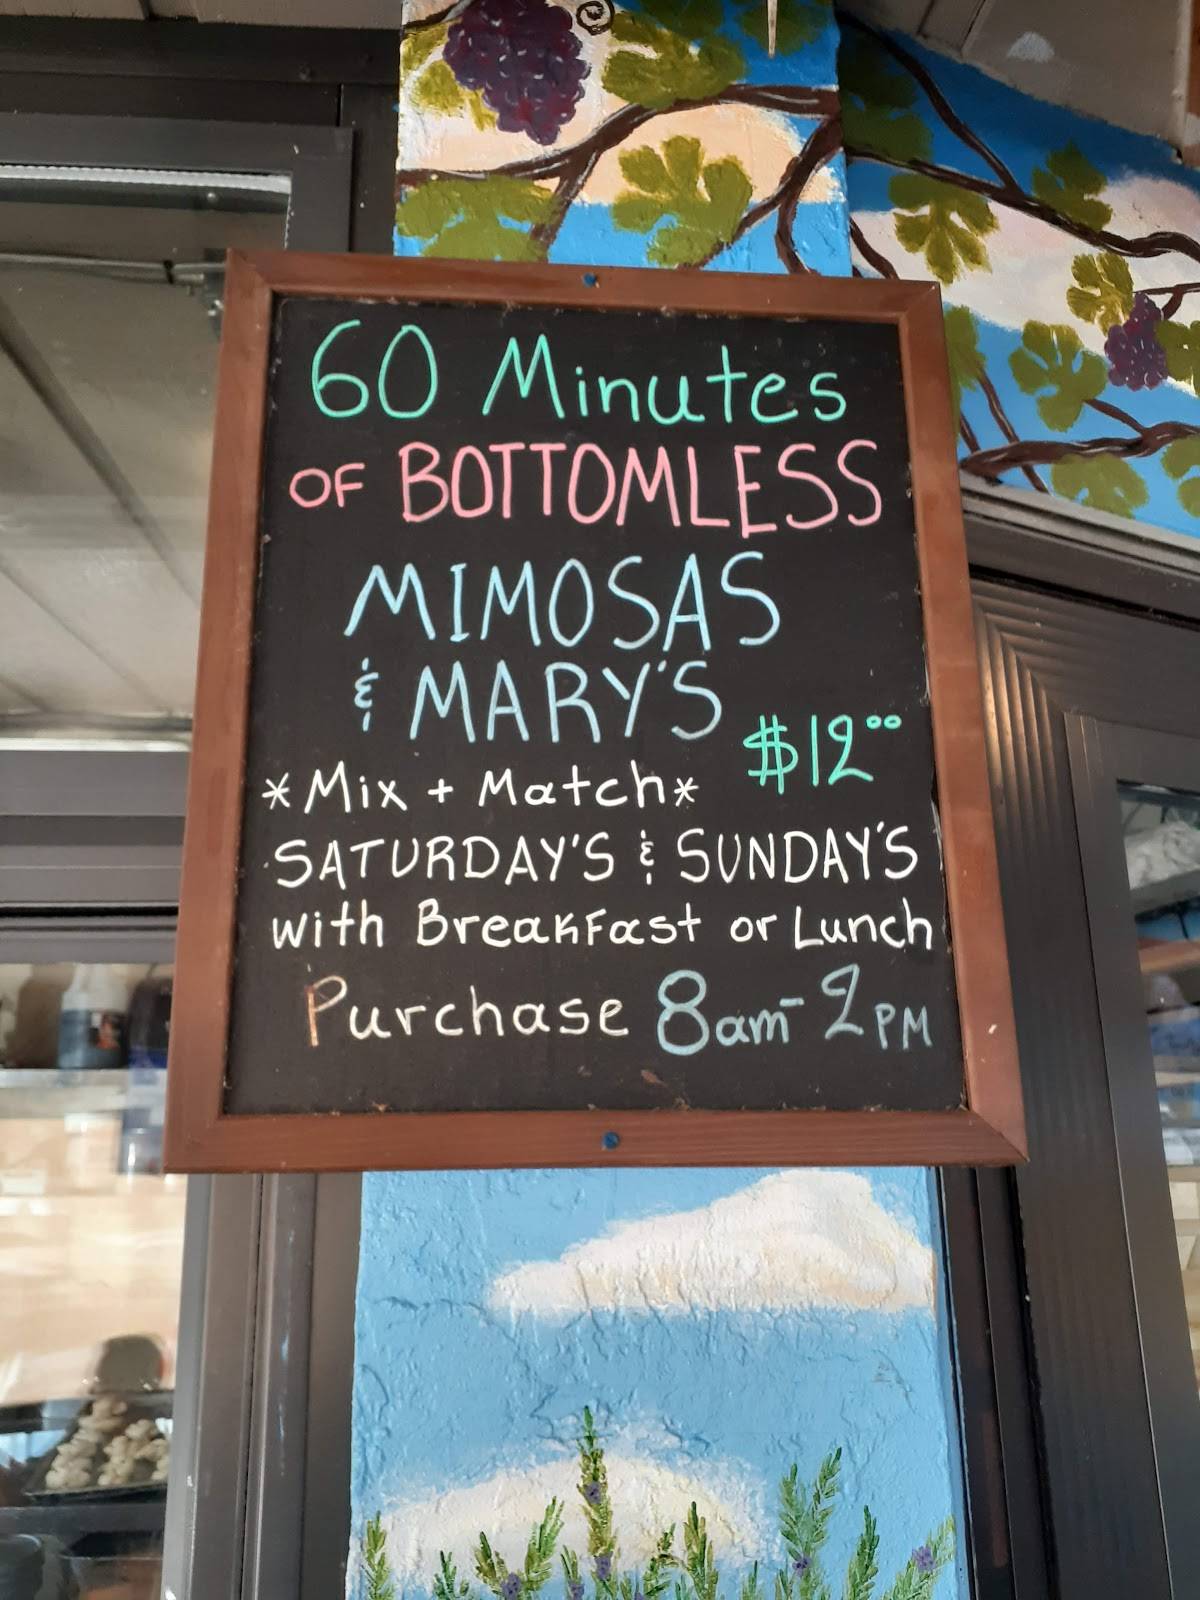 60 Minutes
OF BOTTOMLESS
MIMOSAS
& MARY'S
$12.00
*Mix + Match*
SATURDAY'S & SUNDAY'S
with BreakFast or Lunch
Purchase 8am-2PM